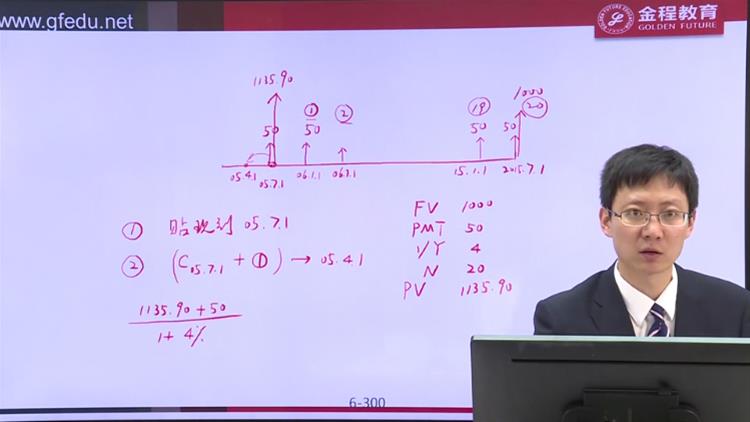 www.gfedu.net
金程教育
GOLDEN FUTURE
1135.90
1000
① ② ⑲ ⑳
50 50 50 50
05.4.1 05.7.1 06.1.1 06.7.1 15.1.1 2015.7.1
① 贴现到 05.7.1
② (C05.7.1 + ①) → 05.4.1
1135.90 + 50
1 + 4%
FV 1000
PMT 50
I/Y 4
N 20
PV 1135.90
6-300